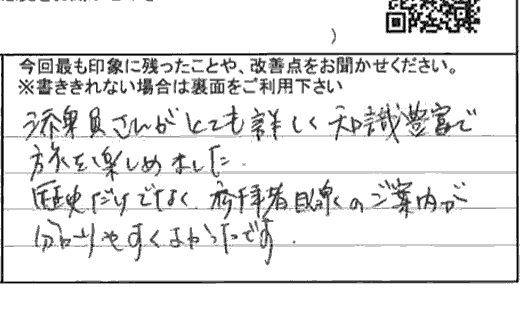 ）
今回最も印象に残ったことや、改善点をお聞かせください。
※書ききれない場合は裏面をご利用下さい
添乗員さんがとても詳しく知識豊富で
旅を楽しめました。
歴史だけでなく、参拝者目線のご案内が
分かりやすくよかったです。